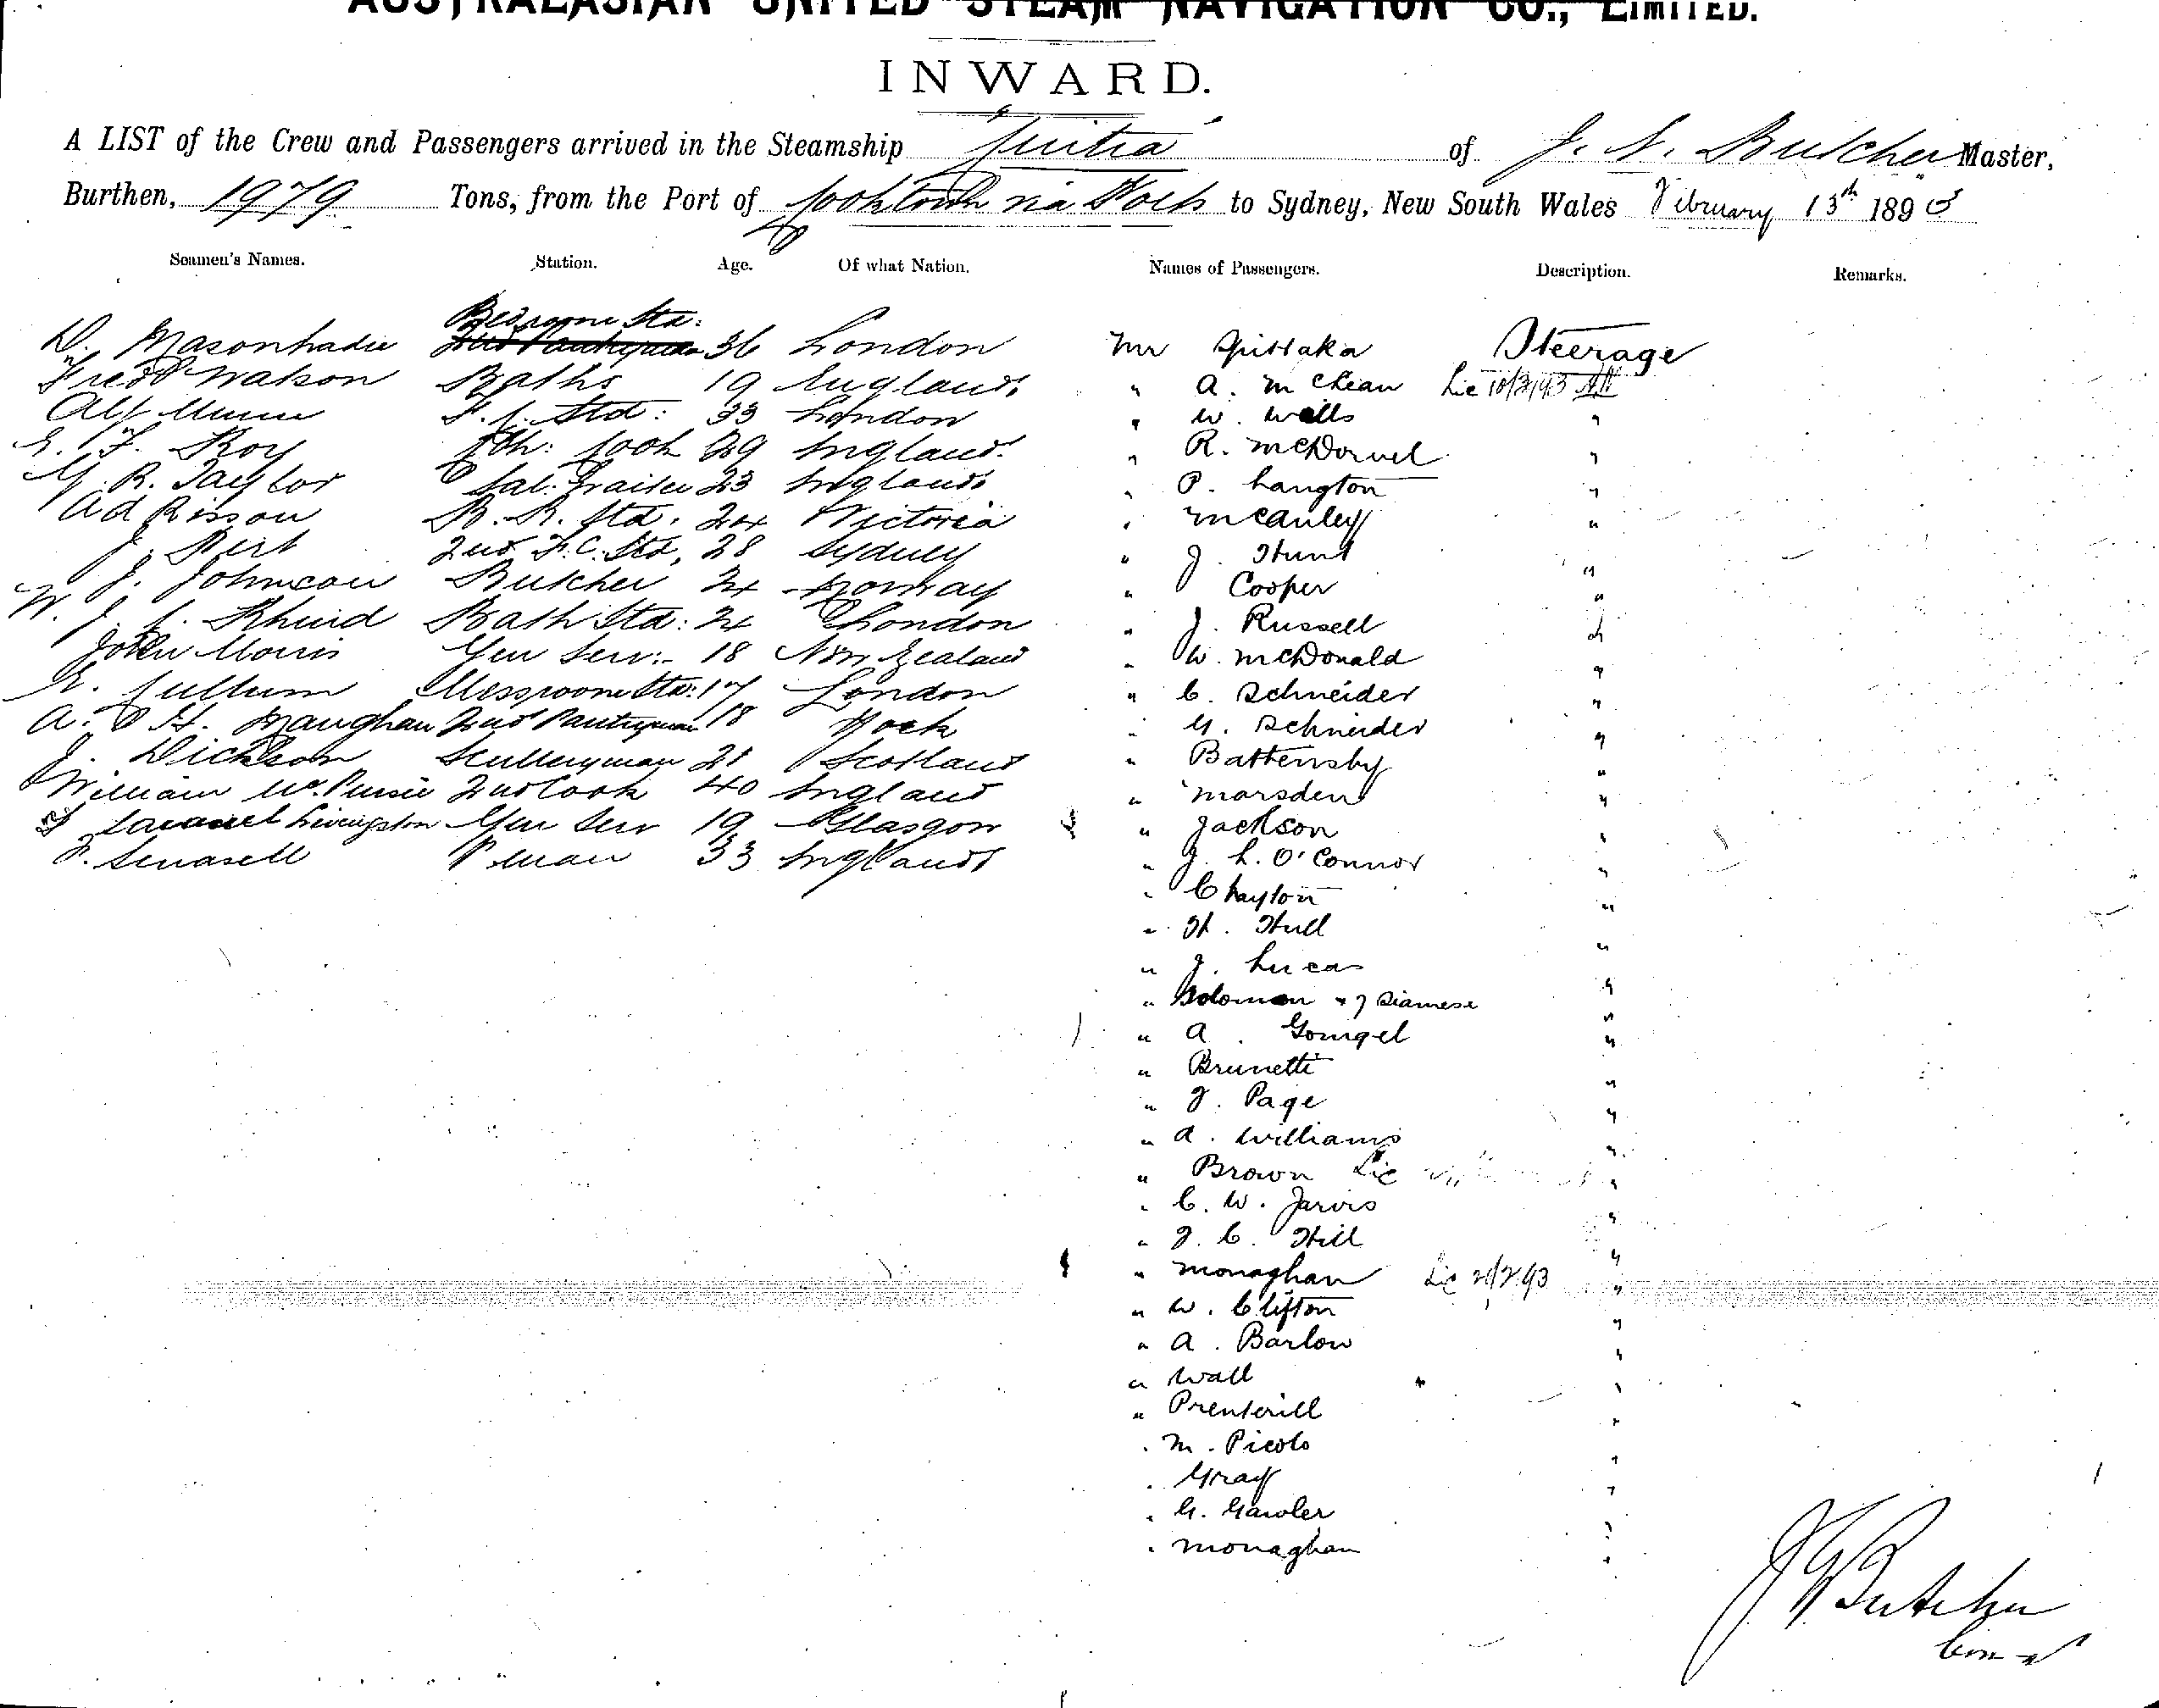 AUSTRALASIAN UNITED STEAM NAVIGATION CO., LIMITED.
INWARD.
A LIST of the Crew and Passengers arrived in the Steamship of J. Butcher Master,
Burthen, 1979 Tons, from the Port of Cooktown via to Sydney, New South Wales February 13th 1893
Seamen's Names. Station. Age. Of what Nation. Names of Passengers. Description. Remarks.
Bedroom Std:
D. 36 London
Fredk Watson Baths 19 England
Alf Munn F. C. Std: 33 London
E. F. Roy Sh: Cook 29 England
G. R. Taylor Sal. Waiter 23 England
Ad Risson B. R. Std. 24 Victoria
J. 2nd F.C. Std, 28 Sydney
J. Johnson Butcher 24 Norway
W. J. C. Bath Std: 24 London
John Morris Gen Serv: 18 New Zealand
E. Cullum Messroom Std: 17 London
A. P. H. Maughan 2nd Pantryman 18
J. Dickson Sculleryman 21 Scotland
William 2nd Cook 40 England
Livingston Gen Serv 19 Glasgow
P man 33 England
Mr Steerage
" A. McLean Lic 10/2/93
" W. Wells "
" R. "
" P. Langton "
" McCauley "
" J. Hunt "
" Cooper "
" J. Russell "
" W. McDonald "
" C. Schneider "
" G. Schneider "
" Battensby "
" Marsden "
" Jackson "
" J. L. O'Connor "
" Clayton "
" H. Hull "
" J. Lucas "
" Solomon + 7 Siamese "
" A. "
" Brunetti "
" J. Page "
" A. Williams "
" Brown Lic "
" C. W. Jarvis "
" J. C. Hill "
" Monaghan Lic "
" W. Clifton "
" A. Barlow "
" Wall "
" "
" M. Picolo "
" Gray "
" G. Gawler "
" Monaghan "
Butcher